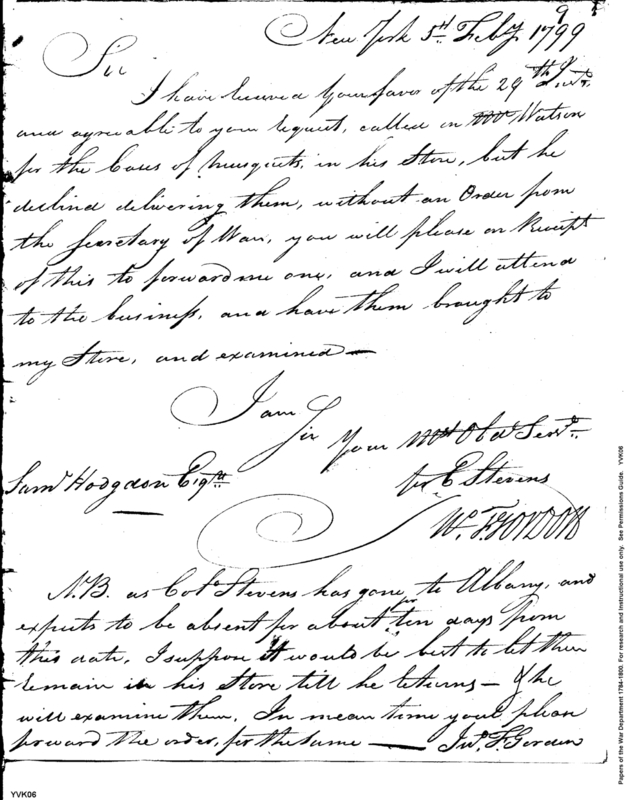 9
New York 5th Feby 1799
Sir
I have received your favor of the 29th Inst.
and agreeable to your request, called on Mr Watson
for the Cases of musquets, in his Store, but he
declind delivering them, without an Order from
the Secretary of War, you will please on Receipt
of this to forward me one, and I will attend
to the business, and have them brought to
my Store, and examined—
I am
Sir your most Obdt Servt
Saml Hodgdon Esqr
for E Stevens
F. GORDON
N.B. as Col. Stevens has gone to Albany, and
expects to be absent for about ten days from
this date, I suppose it would be best to let them
remain in his Store till he returns— & he
will examine them, In mean time youl please
forward the order, for the same — F. Gordon
YVK06
Papers of the War Department 1784-1800. For research and instructional use only. See Permissions Guide. YVK06